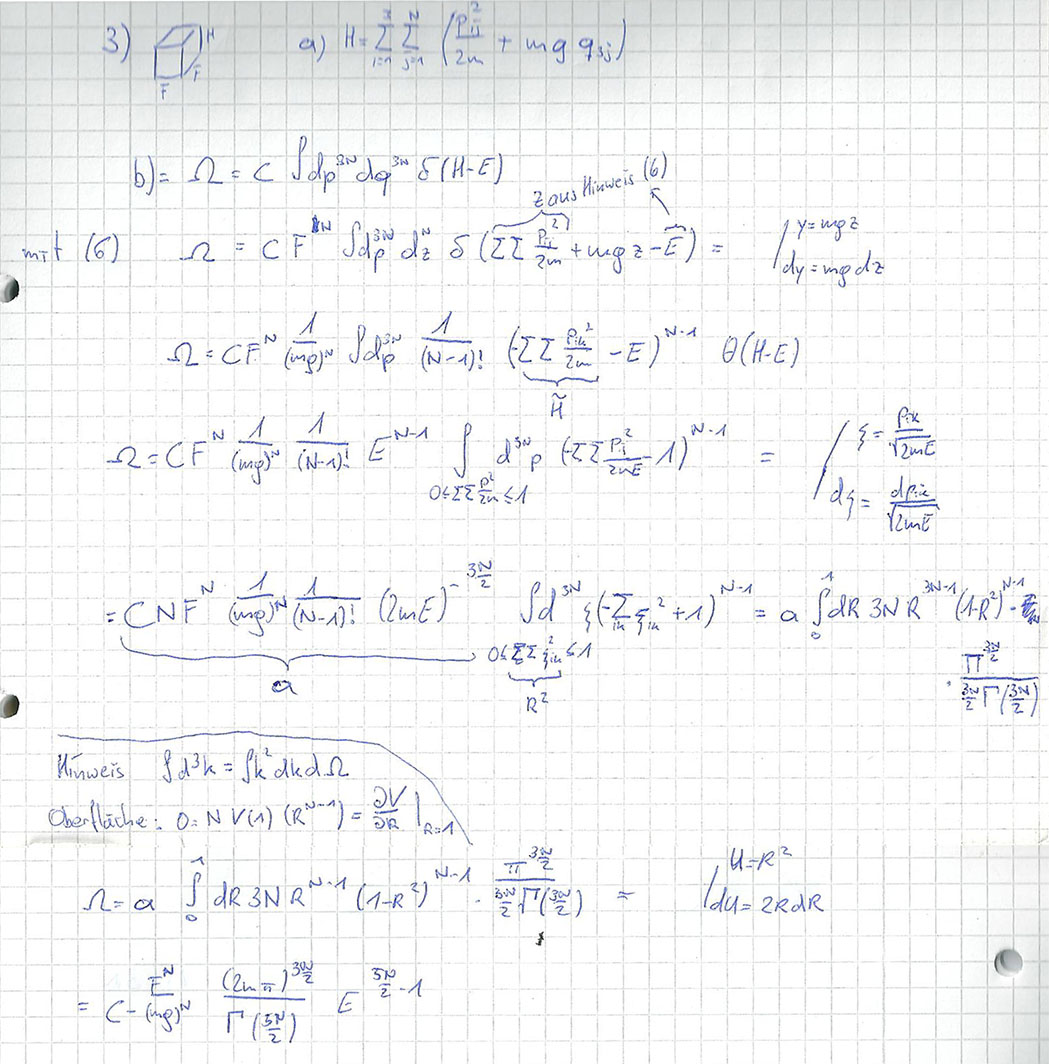 3) H F F a) H = Σ_{i=1}^{3} Σ_{j=1}^{N} (p_{ij}²/2m + mg q_{3j})
b)= Ω = C ∫dp^{3N} dq^{3N} δ(H-E)
z aus Hinweis (6)
mit (6) Ω = C F^{N} ∫dp^{3N} dz^{N} δ(ΣΣ p_{ij}²/2m + mgz - E) = / y = mgz
dy = mg dz
Ω = CF^{N} 1/(mg)^{N} ∫dp^{3N} 1/(N-1)! (-ΣΣ p_{ik}²/2m - E)^{N-1} θ(H-E)
H̃
Ω = CF^{N} 1/(mg)^{N} 1/(N-1)! E^{N-1} ∫_{0≤ΣΣ p²/2m ≤1} d^{3N}p (-ΣΣ p_{i}²/2mE - 1)^{N-1} = / ξ = p_{ik}/√2mE
dξ = dp_{ik}/√2mE
= CNF^{N} 1/(mg)^{N} 1/(N-1)! (2mE)^{-3N/2} ∫_{0≤ΣΣ ξ_{ik}² ≤1} d^{3N}ξ (-Σ_{ik} ξ_{ik}² + 1)^{N-1} = a ∫_0^1 dR 3N R^{3N-1} (1-R²)^{N-1}
a R² · π^{3N/2} / (3N/2 Γ(3N/2))
Hinweis ∫d³k = ∫k² dk dΩ
Oberfläche: O = N V(1) (R^{N-1}) = ∂V/∂R |_{R=1}
Ω = a ∫_0^1 dR 3N R^{N-1} (1-R²)^{N-1} · π^{3N/2} / (3N/2 Γ(3N/2)) = / U = R²
dU = 2R dR
= C - F^{N}/(mg)^{N} (2mπ)^{3N/2} / Γ(5N/2) E^{5N/2 - 1}